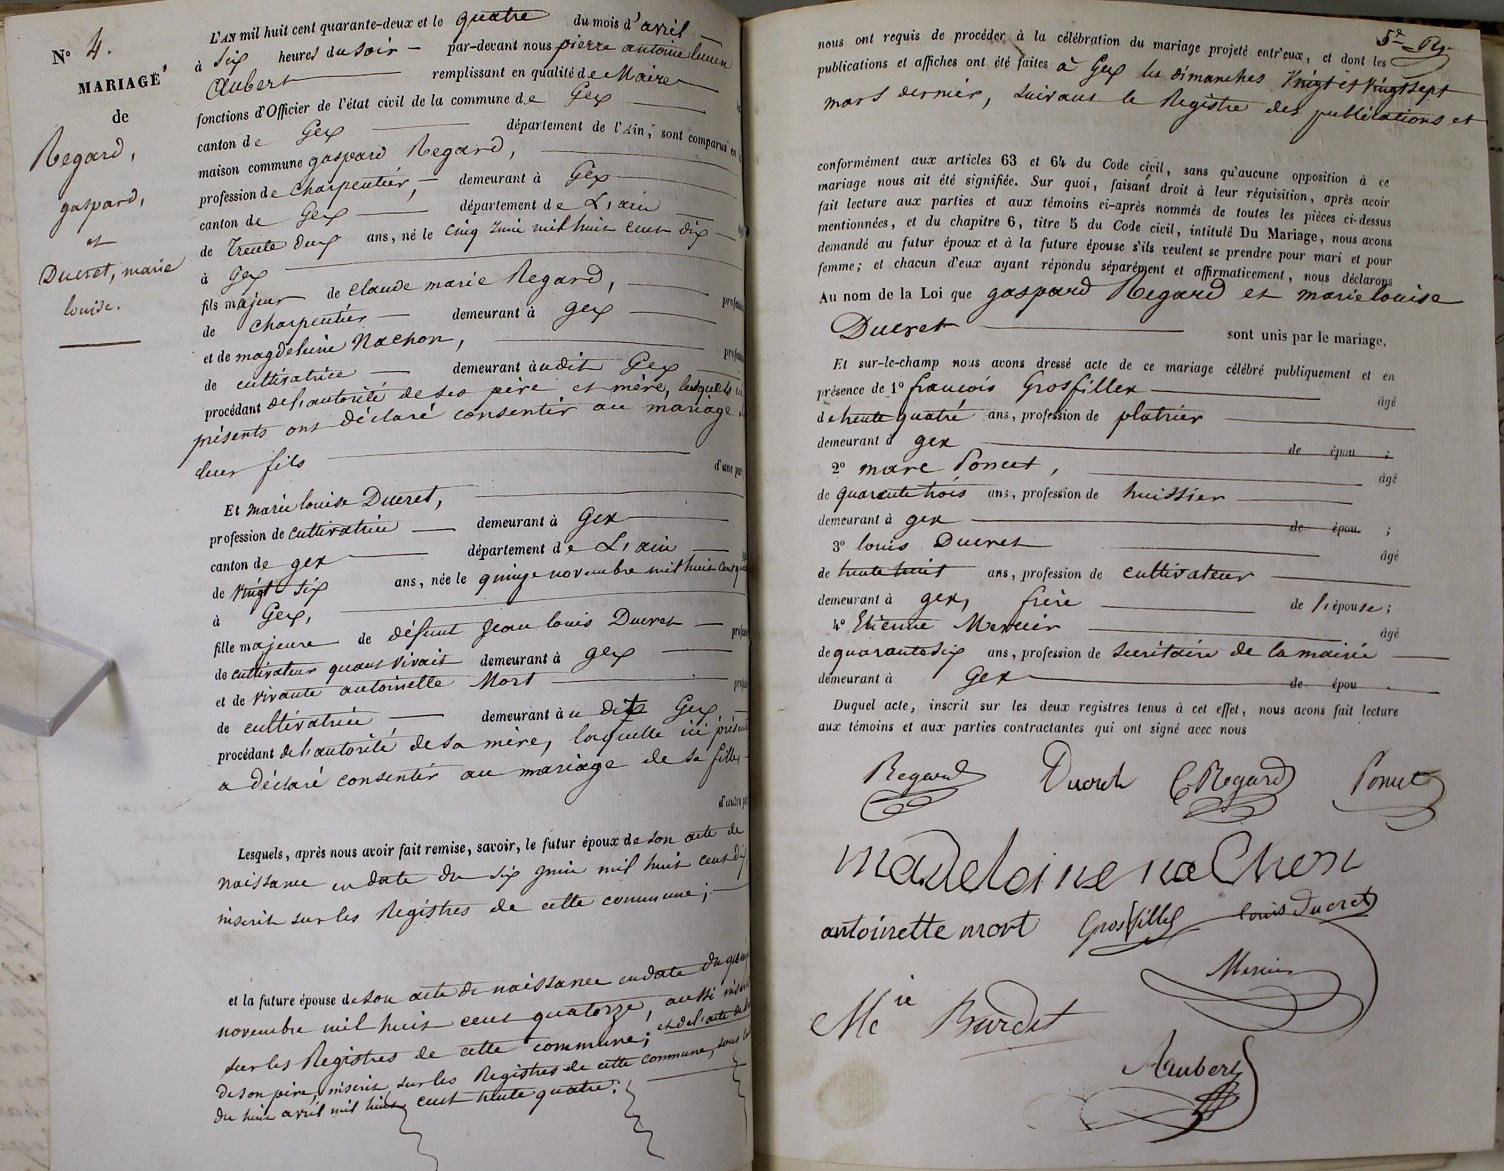 N° 4.
MARIAGE
de
Regard,
gaspard,
et
Ducret, marie
louise.
L'AN mil huit cent quarante-deux et le quatre du mois d'avril
à six heures du soir par-devant nous pierre antoine
Aubert remplissant en qualité de Maire
fonctions d'Officier de l'état civil de la commune de Gex
canton de Gex département de l'Ain, sont comparus en
maison commune gaspard Regard,
profession de charpentier, demeurant à Gex
canton de Gex département de L'ain
de trente deux ans, né le cinq juin mil huit cent dix
à Gex
fils majeur de claude marie Regard,
de charpentier demeurant à gex
et de magdeleine Nachon,
de cultivatrice demeurant audit Gex
procédant de l'autorité de ses père et mère, lesquels ici
présents ont déclaré consentir au mariage de
leur fils d'une part
Et marie louise Ducret,
profession de cultivatrice demeurant à Gex
canton de gex département de L'ain
de vingt six ans, née le quinze novembre mil huit cent
à Gex,
fille majeure de défunt Jean louis Ducret
de cultivateur quant vivait demeurant à gex
et de vivante antoinette Mort
de cultivatrice demeurant au dit Gex
procédant de l'autorité de sa mère, laquelle ici présente
a déclaré consentir au mariage de sa fille
d'autre part
Lesquels, après nous avoir fait remise, savoir, le futur époux de son acte de
naissance en date du six juin mil huit cent dix
inscrit sur les Registres de cette commune;
et la future épouse de son acte de naissance en date du quinze
novembre mil huit cent quatorze, aussi inscrit
sur les Registres de cette commune; et de l'acte de
de son père, inscrit sur les Registres de cette commune, sous la
du huit avril mil huit cent trente quatre.
5e
nous ont requis de procéder à la célébration du mariage projeté entr'eux, et dont les
publications et affiches ont été faites à Gex les dimanches vingt et vingt sept
mars dernier, suivant le Registre des publications et
conformément aux articles 63 et 64 du Code civil, sans qu'aucune opposition à ce
mariage nous ait été signifiée. Sur quoi, faisant droit à leur réquisition, après avoir
fait lecture aux parties et aux témoins ci-après nommés de toutes les pièces ci-dessus
mentionnées, et du chapitre 6, titre 5 du Code civil, intitulé Du Mariage, nous avons
demandé au futur époux et à la future épouse s'ils veulent se prendre pour mari et pour
femme; et chacun d'eux ayant répondu séparément et affirmativement, nous déclarons
Au nom de la Loi que gaspard Regard et marie louise
Ducret sont unis par le mariage.
Et sur-le-champ nous avons dressé acte de ce mariage célébré publiquement et en
présence de 1° françois Grosfillex âgé
de trente quatre ans, profession de platrier
demeurant à gex de épou ;
2° marc Poncet, âgé
de quarante trois ans, profession de huissier
demeurant à gex de épou ;
3° louis Ducret âgé
de trente huit ans, profession de cultivateur
demeurant à gex, frère de l'épouse;
4° Etienne Mercier âgé
de quarante six ans, profession de secrétaire de la mairie
demeurant à Gex de épou .
Duquel acte, inscrit sur les deux registres tenus à cet effet, nous avons fait lecture
aux témoins et aux parties contractantes qui ont signé avec nous
Regard Ducret C Regard Poncet
madeleine nachon
antoinette mort Grosfillex louis Ducret
Mercier
Mcie Burdet
Aubert